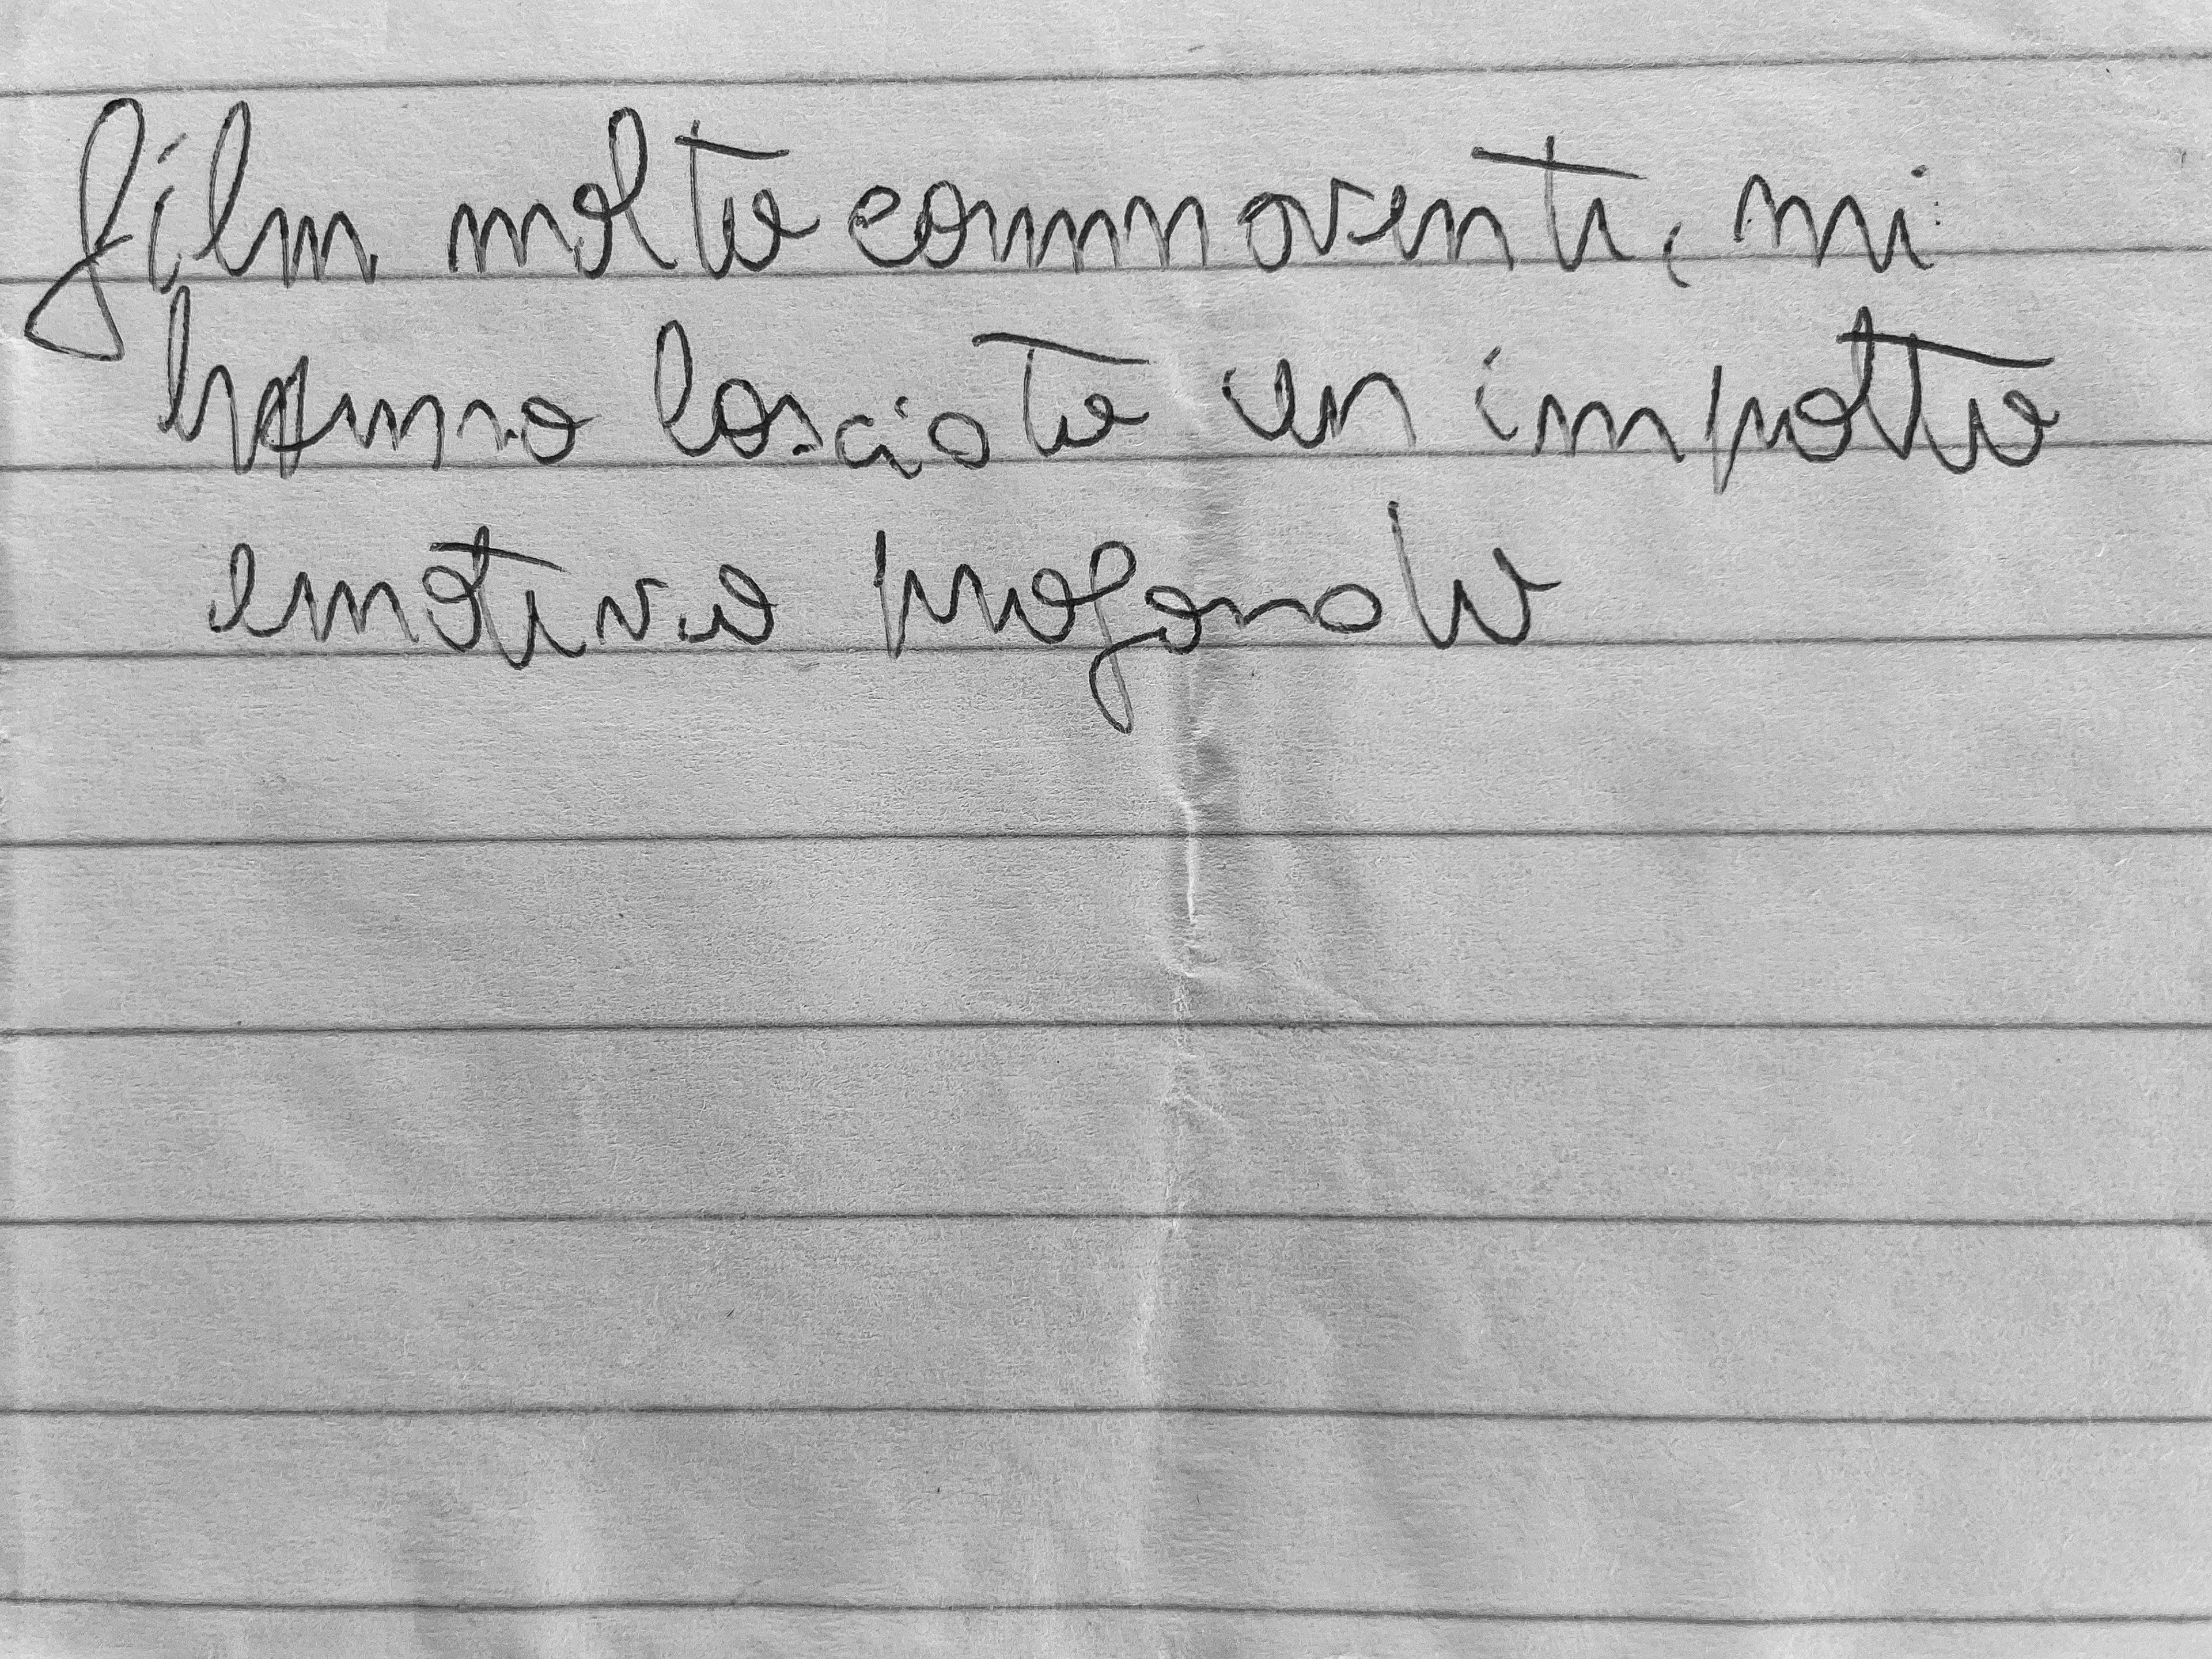 film molto commoventi, mi
hanno lasciato un impatto
emotivo profondo